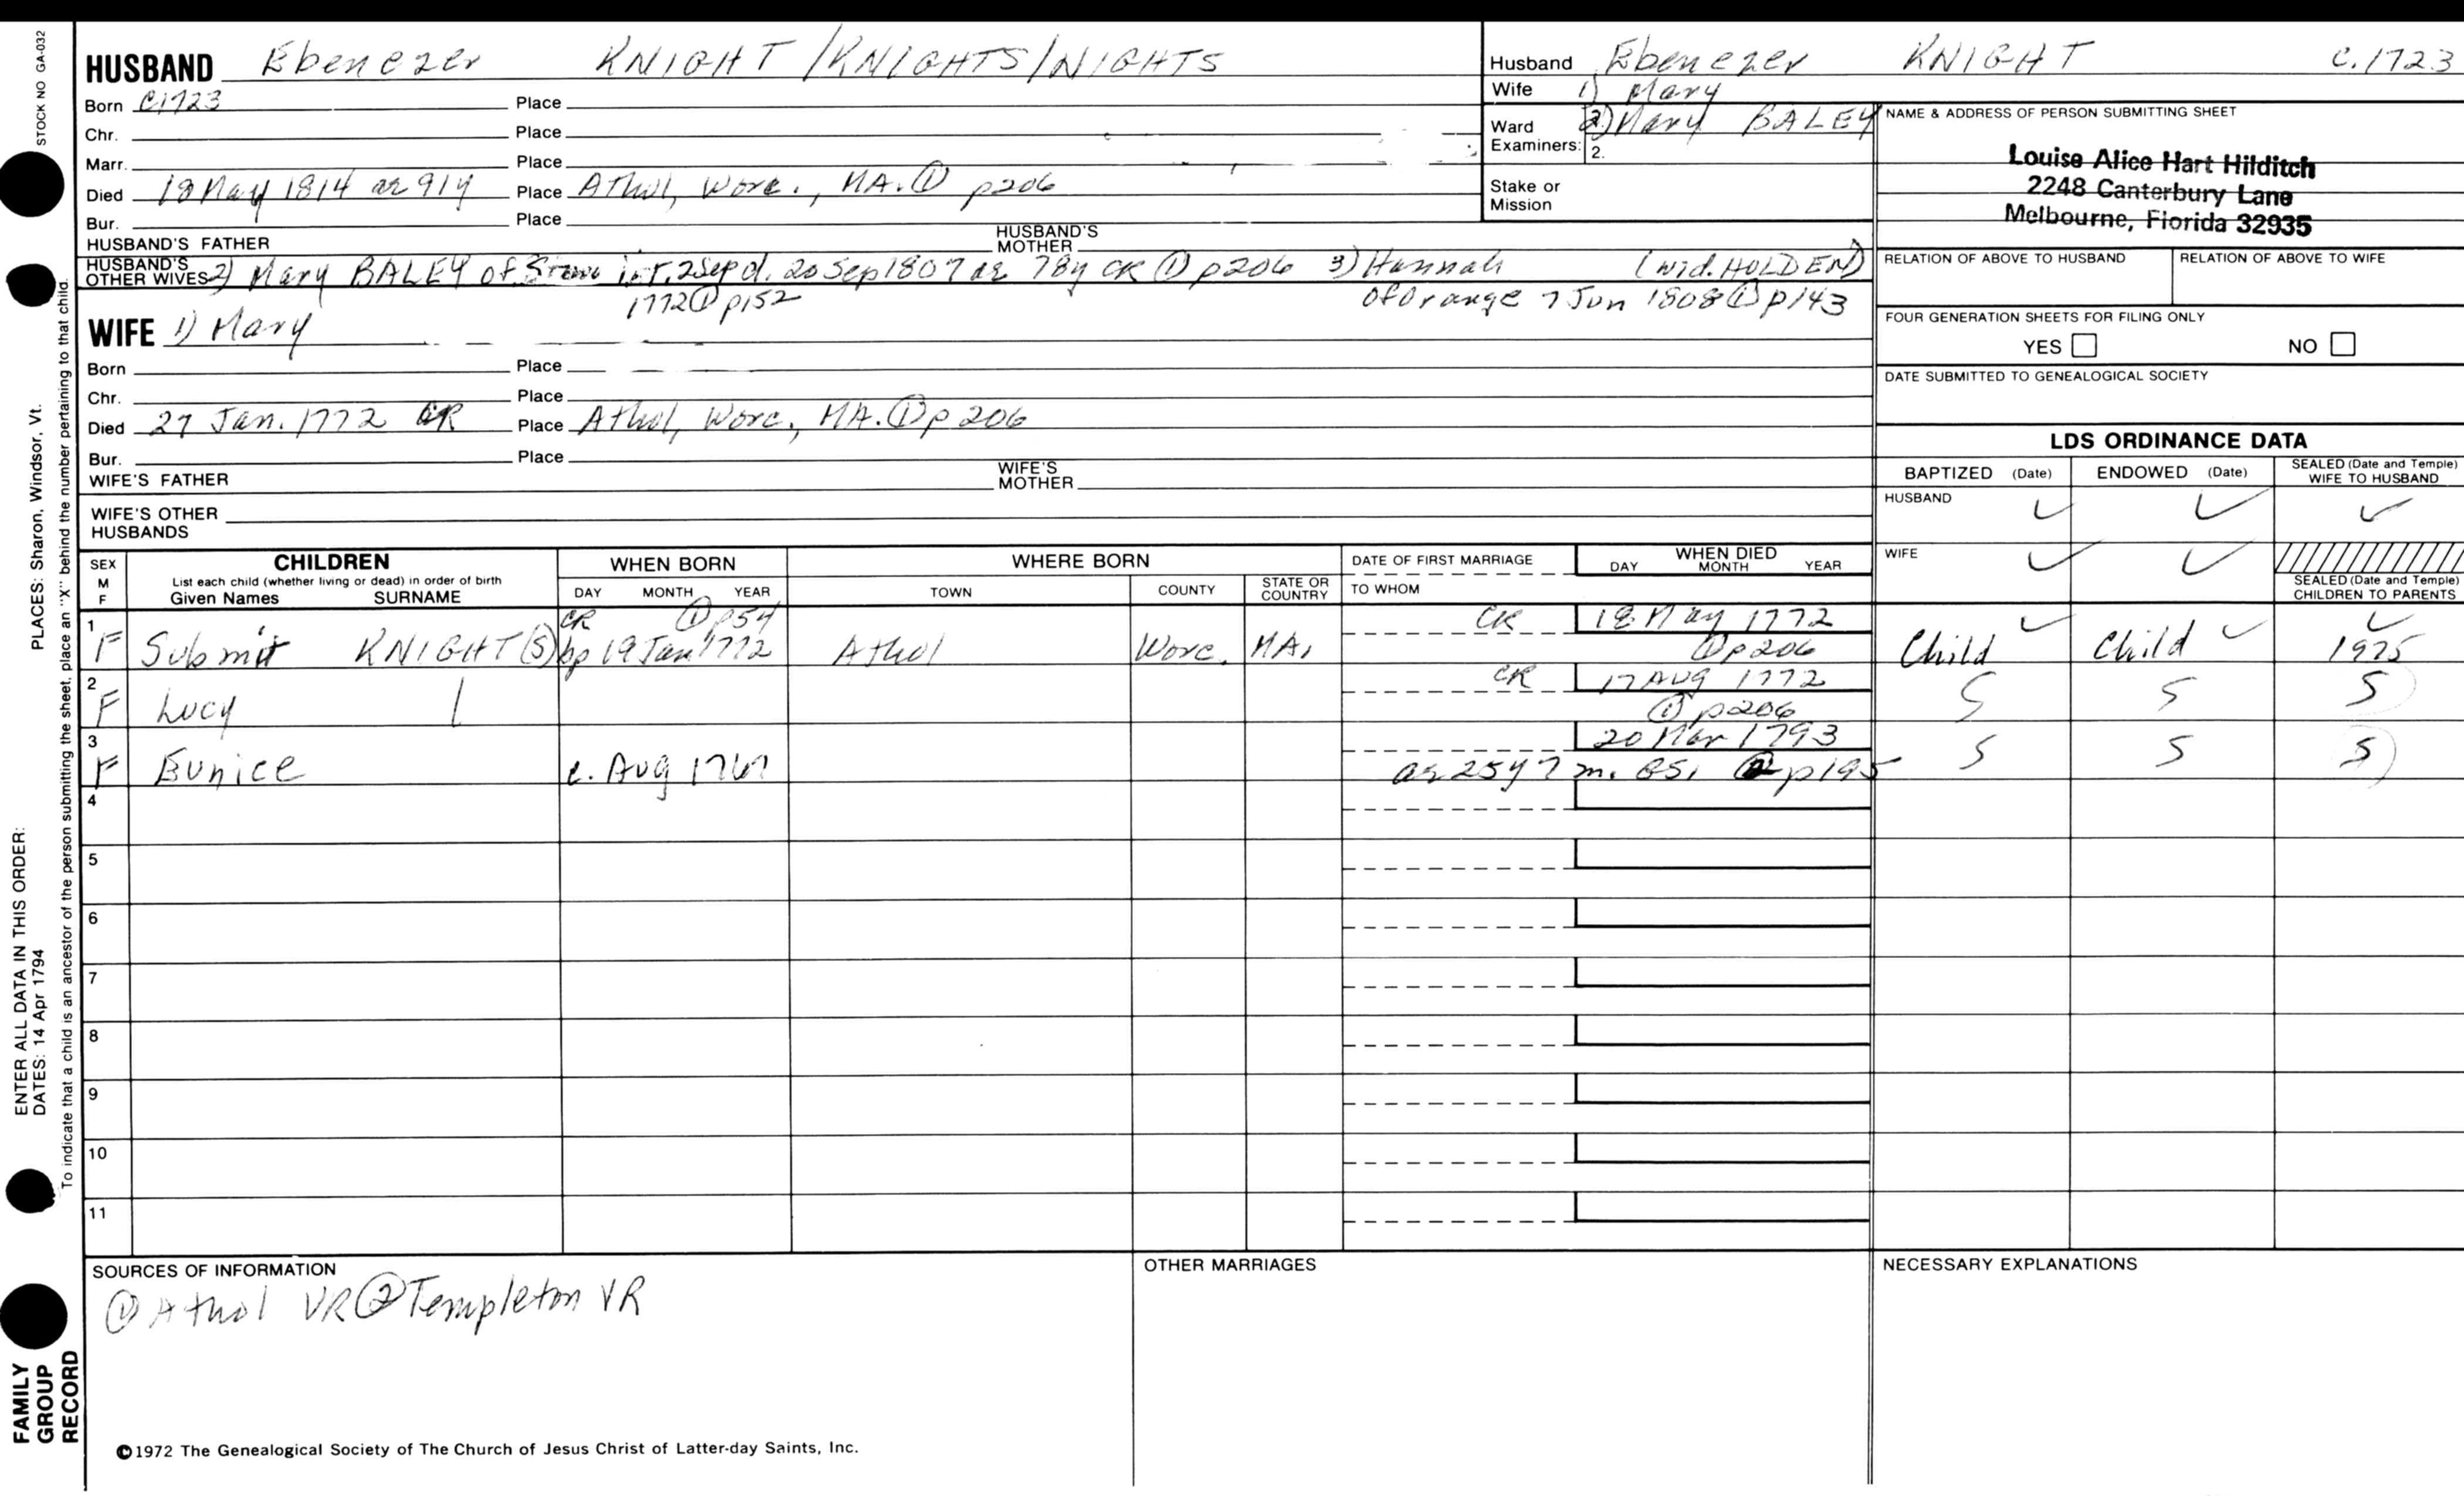 STOCK NO GA-032
HUSBAND Ebenezer KNIGHT/KNIGHTS/NIGHTS
Born C1723 Place
Chr. Place
Marr. Place
Died 18 May 1814 ae 91y Place Athol, Worc., MA. ① p206
Bur. Place
HUSBAND'S FATHER HUSBAND'S MOTHER
HUSBAND'S OTHER WIVES 2) Mary BALEY of int. 2 Sep d. 20 Sep 1807 ae 78y CR ① p206 3) Hannah (wid. HOLDEN)
1772 ① p152 of Orange 7 Jun 1808 ① p143
WIFE 1) Mary
Born Place
Chr. Place
Died 27 Jan. 1772 CR Place Athol, Worc., MA. ① p206
Bur. Place
WIFE'S FATHER WIFE'S MOTHER
WIFE'S OTHER HUSBANDS
Husband Ebenezer KNIGHT c.1723
Wife 1) Mary
2) Mary BALEY
Ward Examiners: 2.
Stake or Mission
NAME & ADDRESS OF PERSON SUBMITTING SHEET
Louise Alice Hart Hilditch
2248 Canterbury Lane
Melbourne, Florida 32935
RELATION OF ABOVE TO HUSBAND RELATION OF ABOVE TO WIFE
FOUR GENERATION SHEETS FOR FILING ONLY
YES NO
DATE SUBMITTED TO GENEALOGICAL SOCIETY
LDS ORDINANCE DATA
BAPTIZED (Date) ENDOWED (Date) SEALED (Date and Temple) WIFE TO HUSBAND
HUSBAND ✓ ✓ ✓
WIFE ✓ ✓
SEALED (Date and Temple) CHILDREN TO PARENTS
SEX M F CHILDREN WHEN BORN WHERE BORN DATE OF FIRST MARRIAGE WHEN DIED
List each child (whether living or dead) in order of birth
Given Names SURNAME DAY MONTH YEAR TOWN COUNTY STATE OR COUNTRY TO WHOM DAY MONTH YEAR
1 CR ① p54 CR 18 May 1772 ✓ ✓ ✓
F Submit KNIGHT(S) bp 19 Jan 1772 Athol Worc. MA. ① p206 Child Child 1975
2 CR 17 AUG 1772
F Lucy ① p206 S S S
3 20 Mar 1793
F Eunice c. Aug 1767 ae 25y 7m. GS1 ② p195 S S S
4
5
6
7
8
9
10
11
SOURCES OF INFORMATION
① Athol VR ② Templeton VR
OTHER MARRIAGES
NECESSARY EXPLANATIONS
©1972 The Genealogical Society of The Church of Jesus Christ of Latter-day Saints, Inc.
ENTER ALL DATA IN THIS ORDER:
DATES: 14 Apr 1794
PLACES: Sharon, Windsor, Vt.
To indicate that a child is an ancestor of the person submitting the sheet, place an "X" behind the number pertaining to that child.
FAMILY
GROUP
RECORD